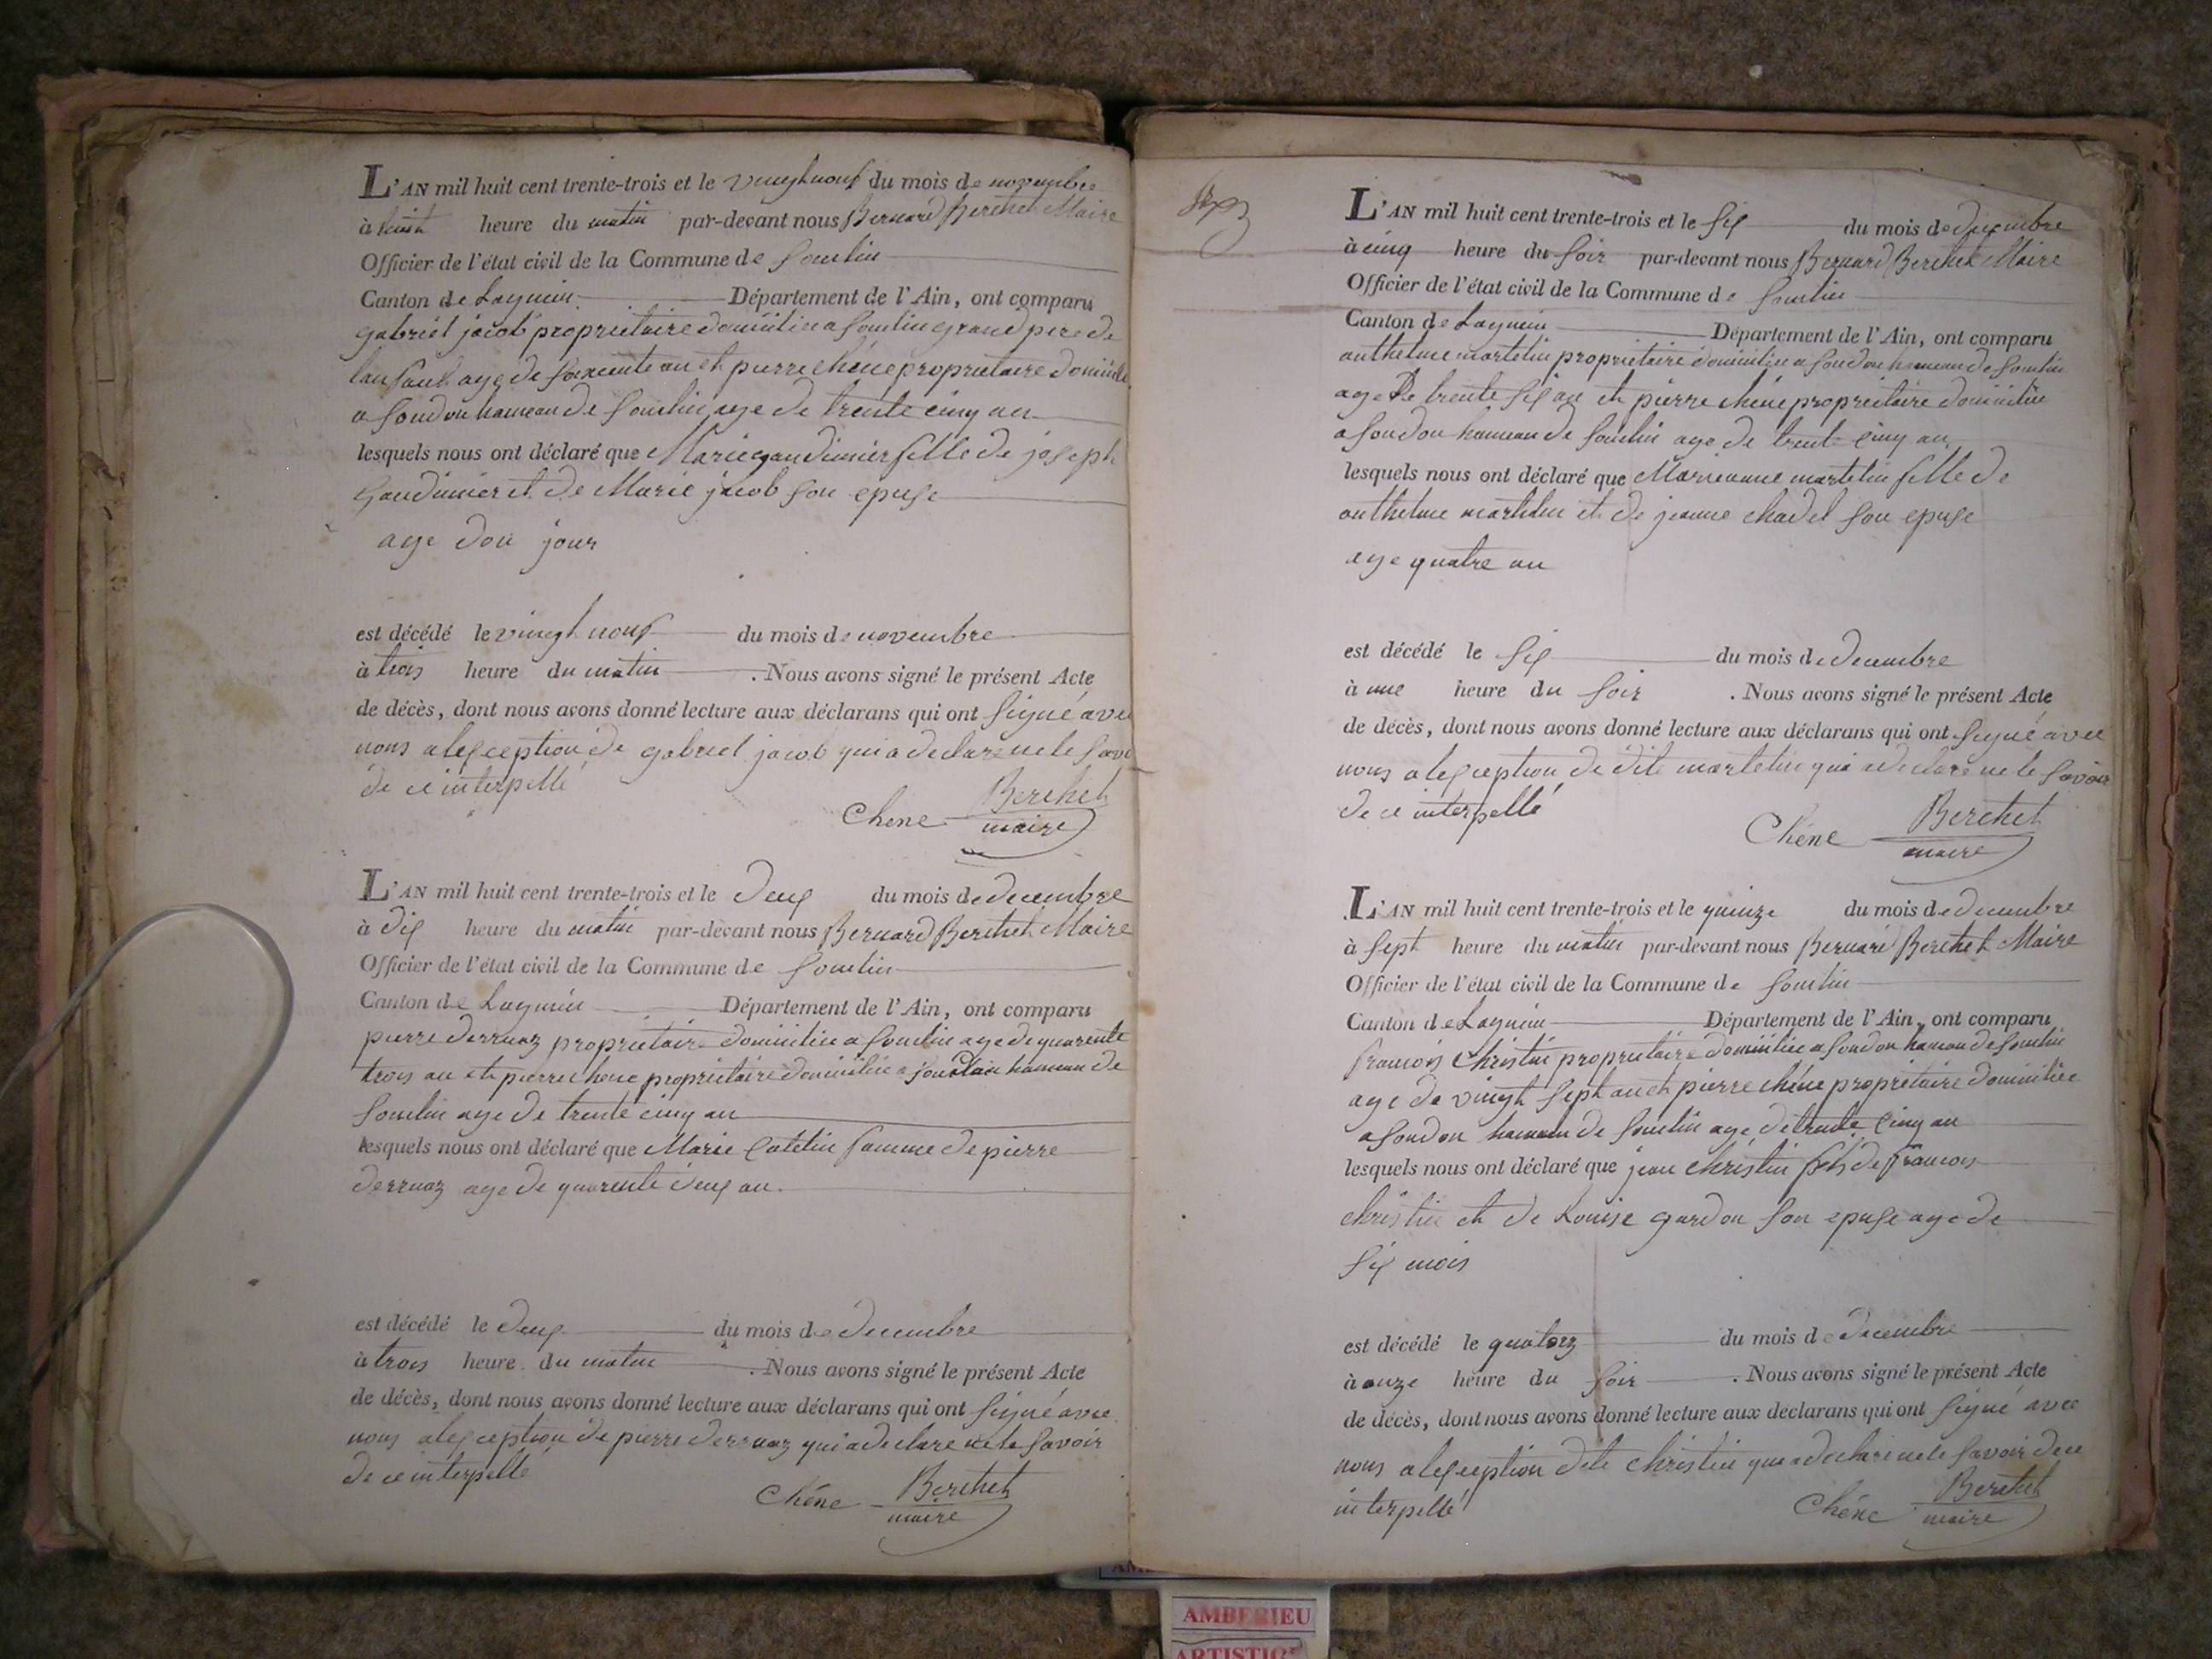 L'AN mil huit cent trente-trois et le vingt nouf du mois de novembre
à huit heure du matin par-devant nous Bernard Berthet Maire
Officier de l'état civil de la Commune de Soudin
Canton de Lagnieu Département de l'Ain, ont comparu
gabriel jacob proprietaire domicilie a grand pere de
lanfant age de soixcente an et pierre chéne proprietaire domicile
a hameau de age de trente cinq an
lesquels nous ont déclaré que Marie gaudinier fille de joseph
Gaudinier et de Marie jacob son epuse
age dou jour
est décédé le vingt nouf du mois de novembre
à trois heure du matin . Nous avons signé le présent Acte
de décès, dont nous avons donné lecture aux déclarans qui ont signé avec
nous a lexception de gabriel jacob qui a declare ne le savo
de ce interpellé
Chene Berthet
maire
L'AN mil huit cent trente-trois et le deux du mois de decembre
à dix heure du matin par-devant nous Bernard Berthet Maire
Officier de l'état civil de la Commune de
Canton de Lagnieu Département de l'Ain, ont comparu
pierre derruaz proprietaire domicilie a age de quarente
trois an et pierre chene proprietaire domicilie a hameau de
age de trente cinq an
lesquels nous ont déclaré que Marie famme de pierre
derruaz age de quarente deux an
est décédé le deux du mois de decembre
à trois heure du matin . Nous avons signé le présent Acte
de décès, dont nous avons donné lecture aux déclarans qui ont signé avec
nous a lexception de pierre derruaz qui a declare ne le savoir
de ce interpellé
Chéne Berthet
maire
L'AN mil huit cent trente-trois et le six du mois de decembre
à cinq heure du soir par-devant nous Bernard Berthet Maire
Officier de l'état civil de la Commune de
Canton de Lagnieu Département de l'Ain, ont comparu
anthelme martelin proprietaire domicilie a hameau de
age de trente six an et pierre chéne proprietaire domicilie
a hameau de age de trente cinq an
lesquels nous ont déclaré que Marieanne martelin fille de
anthelme martelin et de jeanne chadel son epuse
age quatre an
est décédé le six du mois de decembre
à une heure du soir . Nous avons signé le présent Acte
de décès, dont nous avons donné lecture aux déclarans qui ont signé avec
nous a lexception de dite martelin qui a declare ne le savoir
de ce interpellé
Chéne Berthet
maire
L'AN mil huit cent trente-trois et le quinze du mois de decembre
à sept heure du matin par-devant nous Bernard Berthet Maire
Officier de l'état civil de la Commune de
Canton de Lagnieu Département de l'Ain, ont comparu
francois Christin proprietaire domicilie a hameau de
age de vingt sept an et pierre chéne proprietaire domicilie
a hameau de age de trente cinq an
lesquels nous ont déclaré que jean christin fils de francois
christin et de Louise gardon son epuse age de
six mois
est décédé le quatorz du mois de decembre
à onze heure du soir . Nous avons signé le présent Acte
de décès, dont nous avons donné lecture aux déclarans qui ont signé avec
nous a lexception dite christin qui a declare ne le savoir de ce
interpellé
Chéne Berthet
maire
AMBERIEU
ARTISTIC